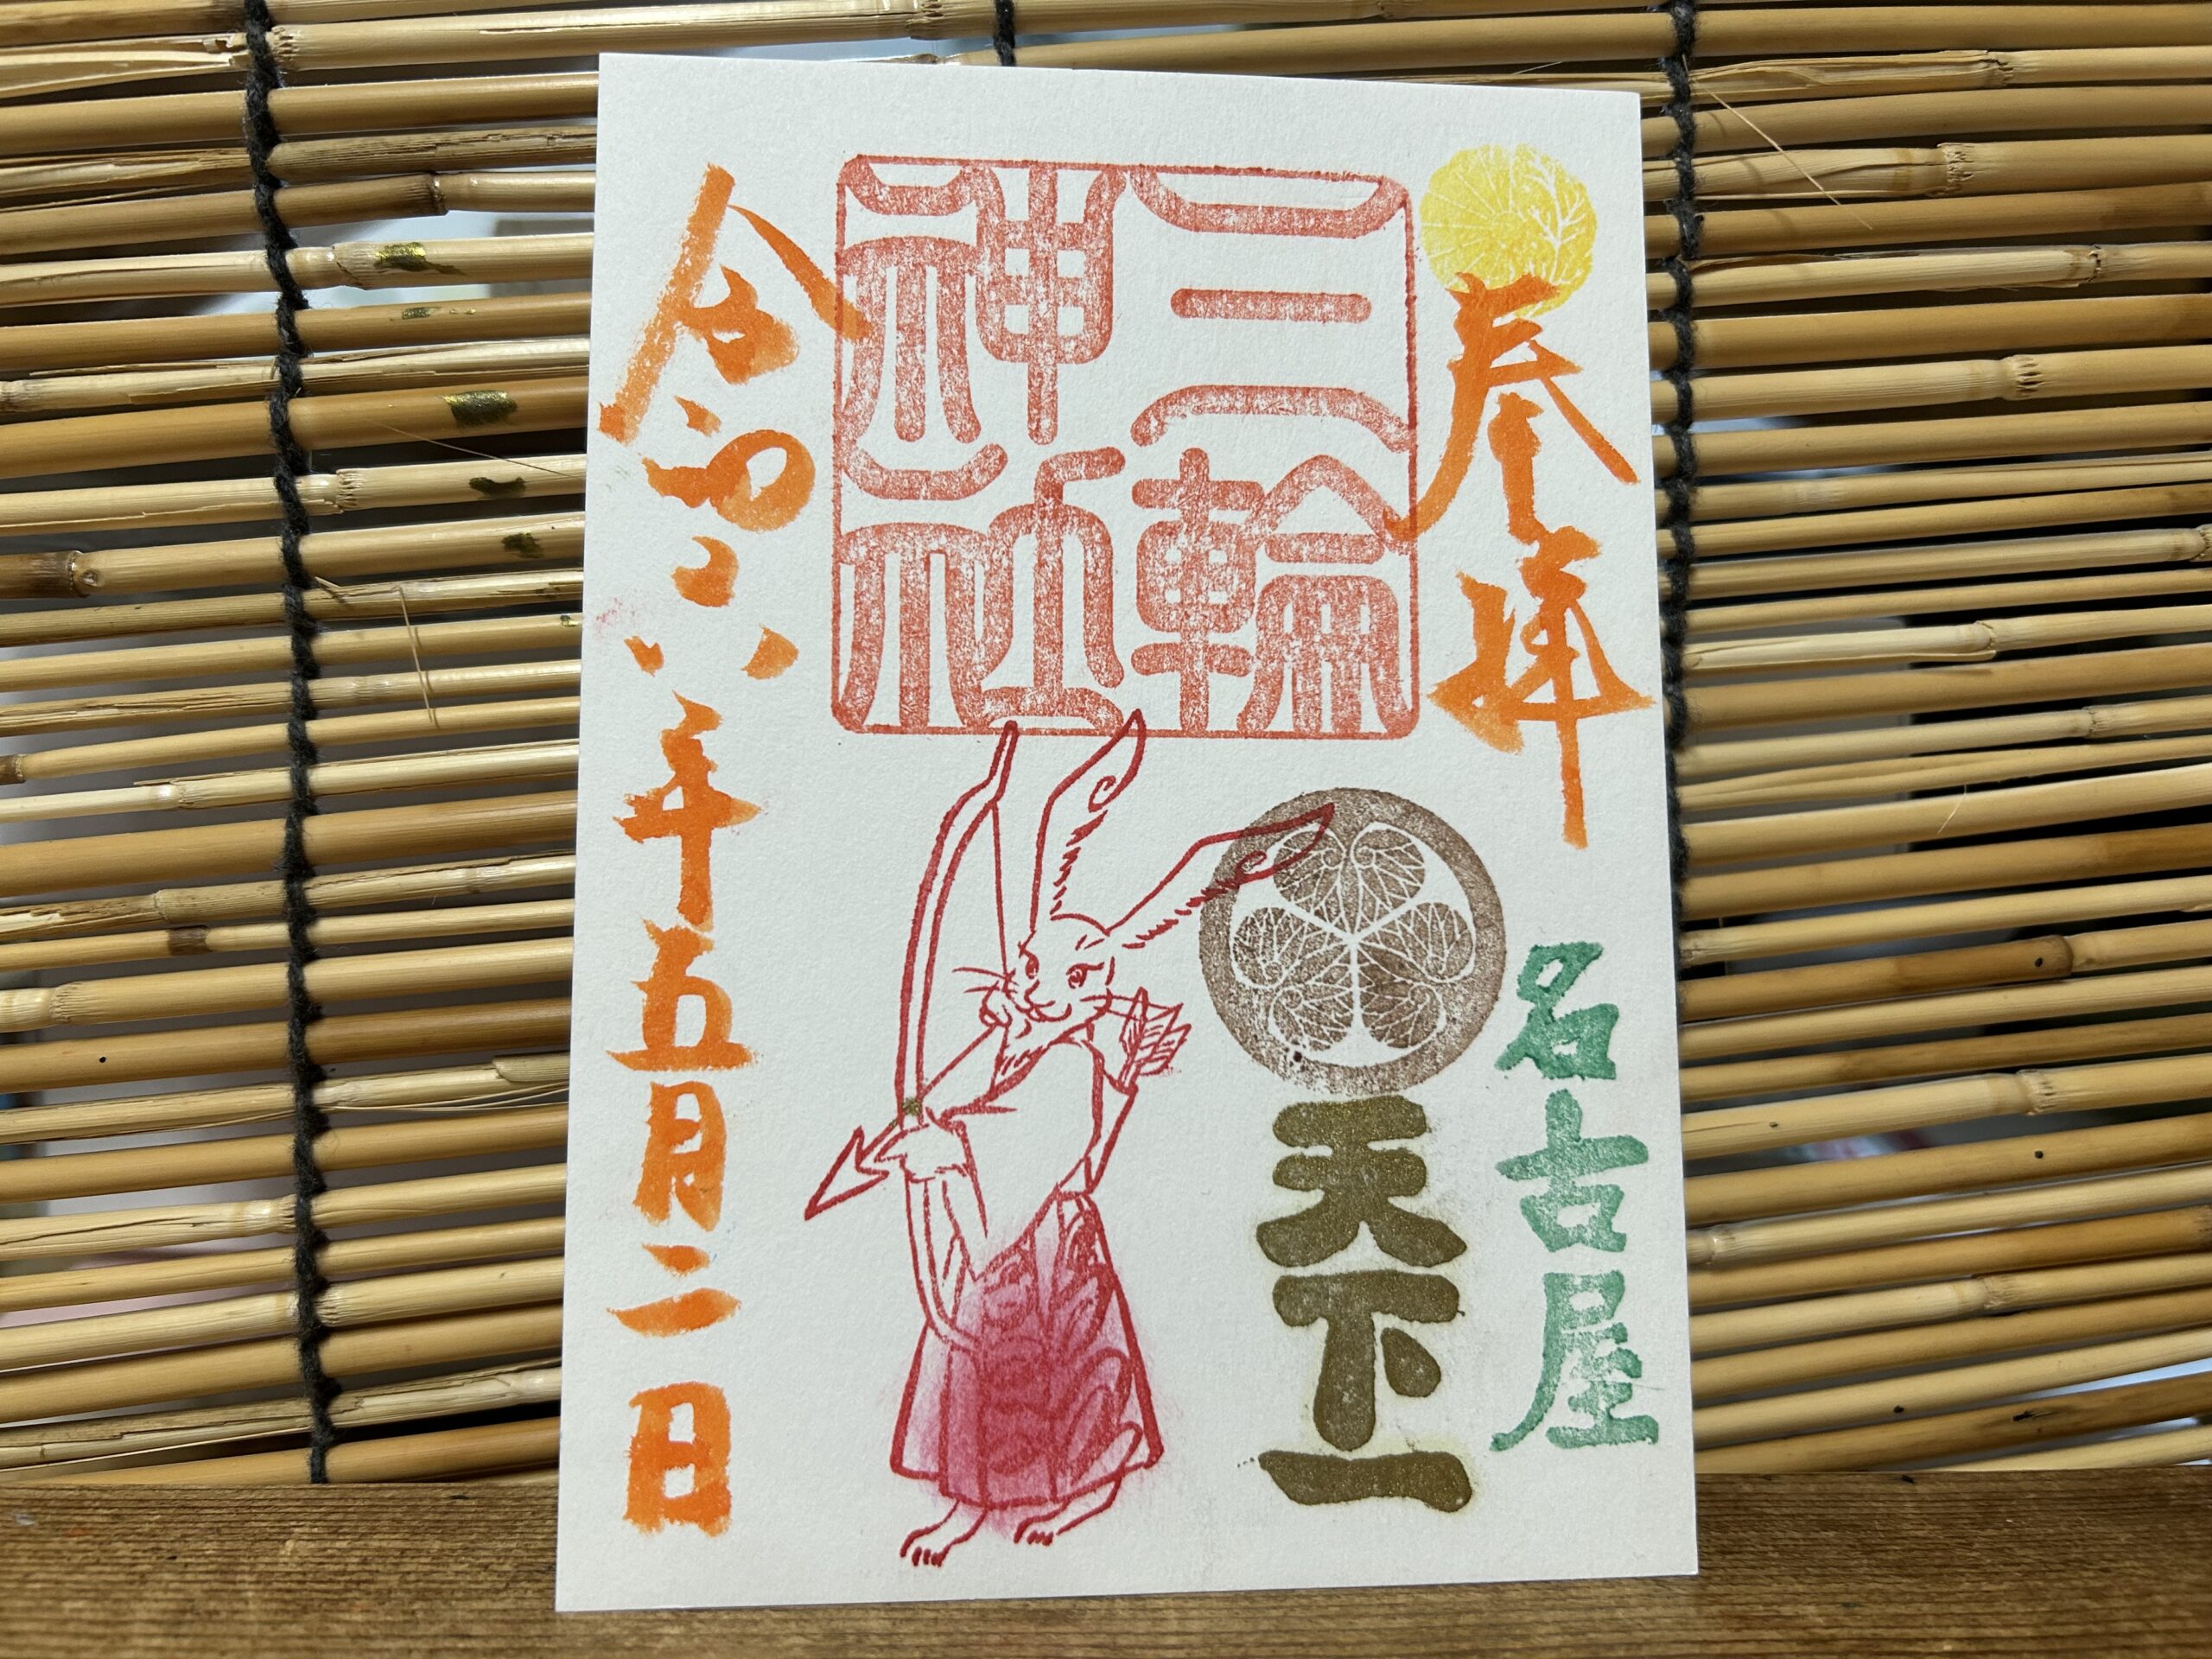 奉拝
名古屋
天下一
三輪
神社
令和六年五月二日